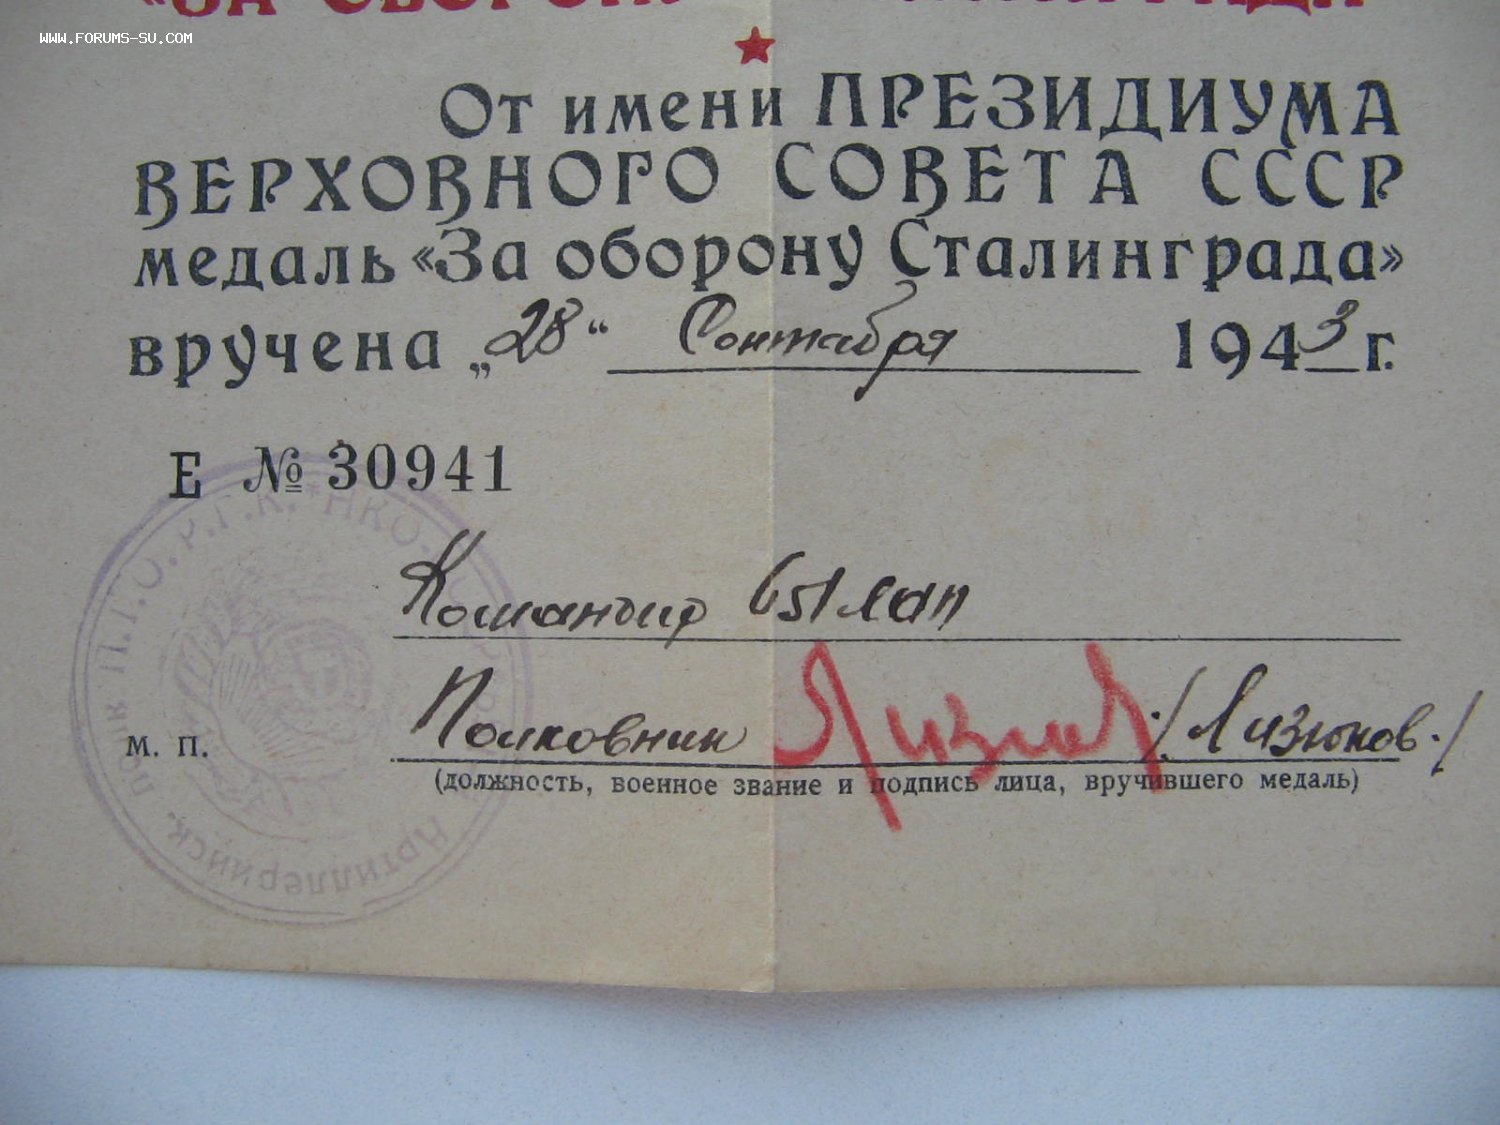 «ЗА ОБОРОНУ СТАЛИНГРАДА»
WWW.FORUMS-SU.COM
От имени ПРЕЗИДИУМА
ВЕРХОВНОГО СОВЕТА СССР
медаль «За оборону Сталинграда»
вручена „28“ Сентября 1943 г.
Е № 30941
П.Т.О. Р.Г.К. * НКО
полк
Артиллерийск.
Командир
Полковник /Лизюков./
м. п.
(должность, военное звание и подпись лица, вручившего медаль)